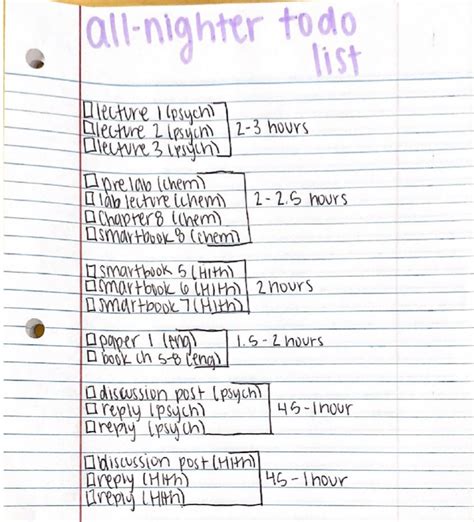 all-nighter todo
list
lecture 1 (psych)
lecture 2 (psych)
lecture 3 (psych)
2-3 hours
pre lab (chem)
lab lecture (chem)
Chapter 8 (chem)
smartbook 8 (chem)
2-2.5 hours
smartbook 5 (Hlth)
smartbook 6 (Hlth)
smartbook 7 (Hlth)
2 hours
paper 1 (eng)
book ch 5-8 (eng)
1.5-2 hours
discussion post (psych)
reply (psych)
reply (psych)
45-1 hour
discussion post (Hlth)
reply (Hlth)
reply (Hlth)
45-1 hour